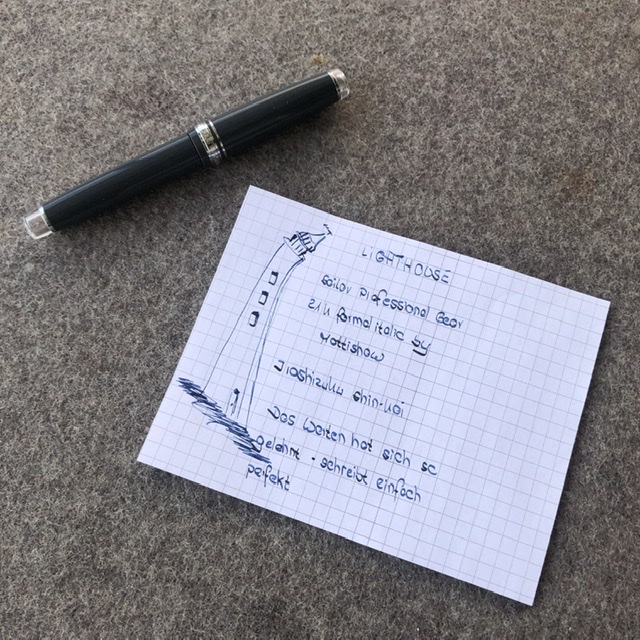 LIGHTHOUSE
Sailor Professional Gear
21 K formalitalic by
Mottishaw
Iroshizuku shin-kai
Das Warten hat sich so
gelohnt - schreibt einfach
perfekt